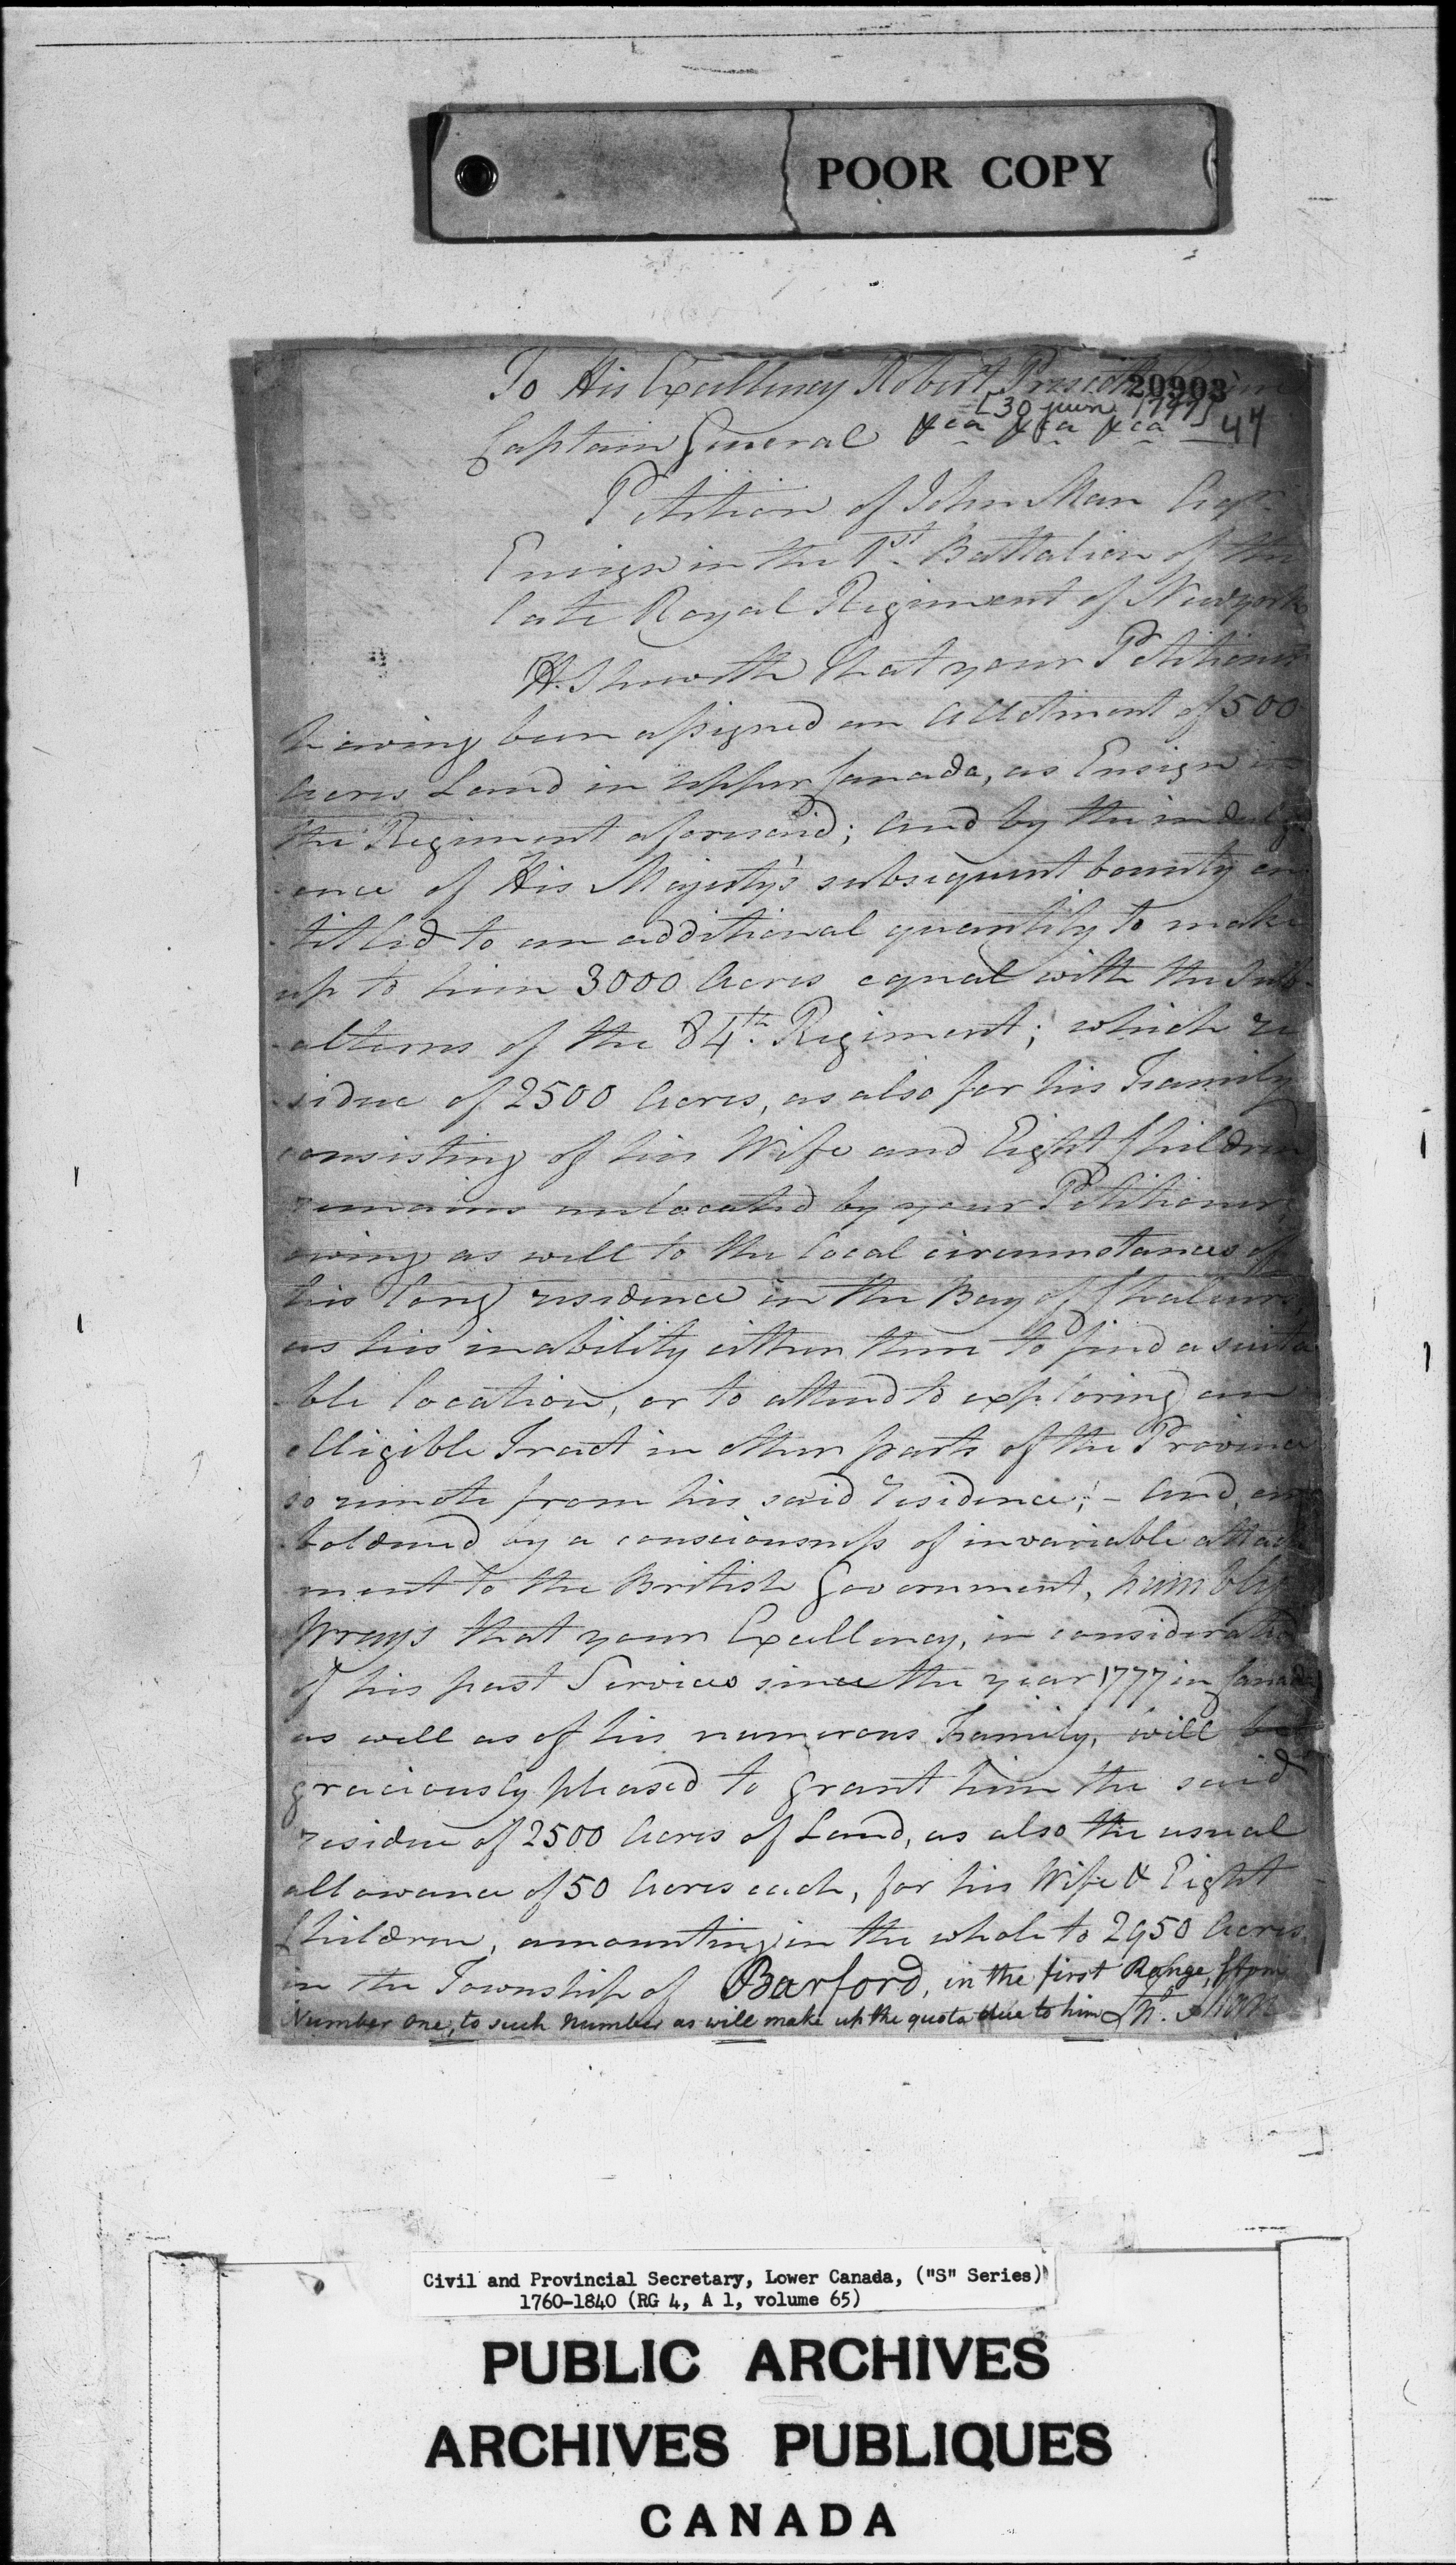 POOR COPY
To His Excellency Robert Prescott
20903
[30 juin 1797]
47
Captain General &ca &ca &ca
Petition of John Man Esqr.
Ensign in the 1st. Battalion of the
late Royal Regiment of Newyork
H. Sheweth That your Petitioner
having been assigned an allotment of 500
Acres Land in upper Canada, as Ensign in
the Regiment aforesaid; and by the indulg
-ence of His Majesty's subsequent bounty en
-titled to an additional quantity to make
up to him 3000 Acres equal with the Sub-
-alterns of the 84th. Regiment; which re
-sidue of 2500 Acres, as also for his Family
consisting of his Wife and Eight Children
remains unlocated by your Petitioner,
owing as well to the local circumstances of
his long residence in the Bay of Chaleurs,
as his inability either there to find a suita
-ble location, or to attend to exploring an
elligible Tract in other parts of the Province
so remote from his said residence; - And, em
boldened by a consciousness of invariable attach
ment to the British Government, humbly
prays that your Excellency, in consideration
of his past Services since the year 1777 in Canada
as well as of his numerous Family, will be
graciously pleased to grant him the said
residue of 2500 Acres of Land, as also the usual
allowance of 50 Acres each, for his Wife & Eight
Children, amounting in the whole to 2950 Acres
in the Township of Barford, in the first Range, from
Number one, to such number as will make up the quota due to him
Civil and Provincial Secretary, Lower Canada, ("S" Series)
1760-1840 (RG 4, A 1, volume 65)
PUBLIC ARCHIVES
ARCHIVES PUBLIQUES
CANADA